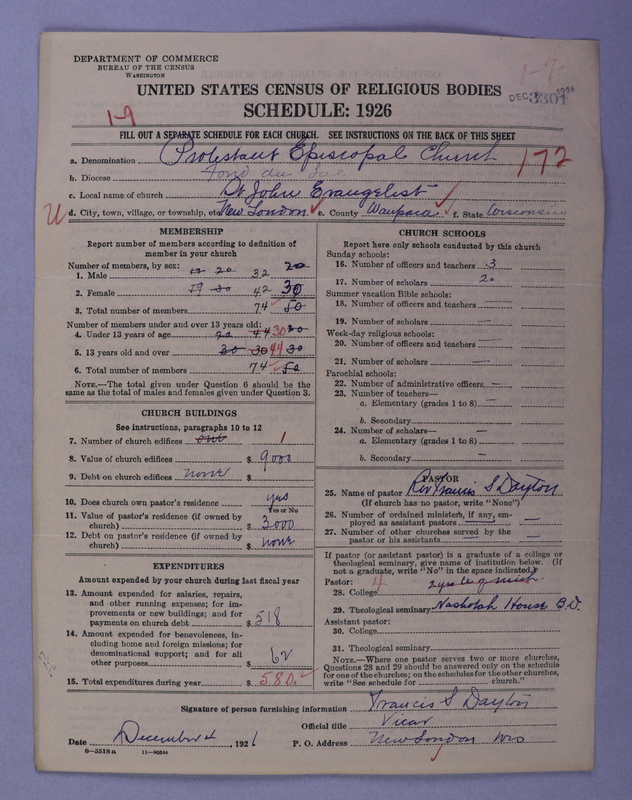 DEPARTMENT OF COMMERCE
BUREAU OF THE CENSUS
WASHINGTON
UNITED STATES CENSUS OF RELIGIOUS BODIES
DEC 1926
3301
SCHEDULE: 1926
1-9
FILL OUT A SEPARATE SCHEDULE FOR EACH CHURCH. SEE INSTRUCTIONS ON THE BACK OF THIS SHEET
a. Denomination Protestant Episcopal Church 172
b. Diocese Fond du Lac
c. Local name of church St John Evangelist
d. City, town, village, or township, etc. New London e. County Waupaca f. State Wisconsin
MEMBERSHIP
Report number of members according to definition of
member in your church
Number of members, by sex:
1. Male 20 32 20
2. Female 19 30 42 30
3. Total number of members 74 50
Number of members under and over 13 years old:
4. Under 13 years of age 20 44 30 20
5. 13 years old and over 30 30 44 30
6. Total number of members 74 50
NOTE.—The total given under Question 6 should be the
same as the total of males and females given under Question 3.
CHURCH BUILDINGS
See instructions, paragraphs 10 to 12
7. Number of church edifices one 1
8. Value of church edifices $ 9000
9. Debt on church edifices none $
10. Does church own pastor's residence yes
Yes or No
11. Value of pastor's residence (if owned by
church) $ 3000
12. Debt on pastor's residence (if owned by
church) $ none
EXPENDITURES
Amount expended by your church during last fiscal year
13. Amount expended for salaries, repairs,
and other running expenses; for im-
provements or new buildings; and for
payments on church debt $ 518
14. Amount expended for benevolences, in-
cluding home and foreign missions; for
denominational support; and for all
other purposes $ 62
15. Total expenditures during year $ 580.
CHURCH SCHOOLS
Report here only schools conducted by this church
Sunday schools:
16. Number of officers and teachers 3
17. Number of scholars 20
Summer vacation Bible schools:
18. Number of officers and teachers —
19. Number of scholars —
Week-day religious schools:
20. Number of officers and teachers —
21. Number of scholars —
Parochial schools:
22. Number of administrative officers —
23. Number of teachers—
a. Elementary (grades 1 to 8) —
b. Secondary
24. Number of scholars—
a. Elementary (grades 1 to 8) —
b. Secondary —
PASTOR
25. Name of pastor Rev Francis S Dayton
(If church has no pastor, write "None")
26. Number of ordained ministers, if any, em-
ployed as assistant pastors —
27. Number of other churches served by the
pastor or his assistants —
If pastor (or assistant pastor) is a graduate of a college or
theological seminary, give name of institution below. (If
not a graduate, write "No" in the space indicated.)
Pastor:
28. College
29. Theological seminary Nashotah House B.D.
Assistant pastor:
30. College
31. Theological seminary
NOTE.—Where one pastor serves two or more churches,
Questions 28 and 29 should be answered only on the schedule
for one of the churches; on the schedules for the other churches,
write "See schedule for church."
Signature of person furnishing information Francis S Dayton
Official title Vicar
Date December 4, 1926 P. O. Address New London Wis
8—5518a 11—9056